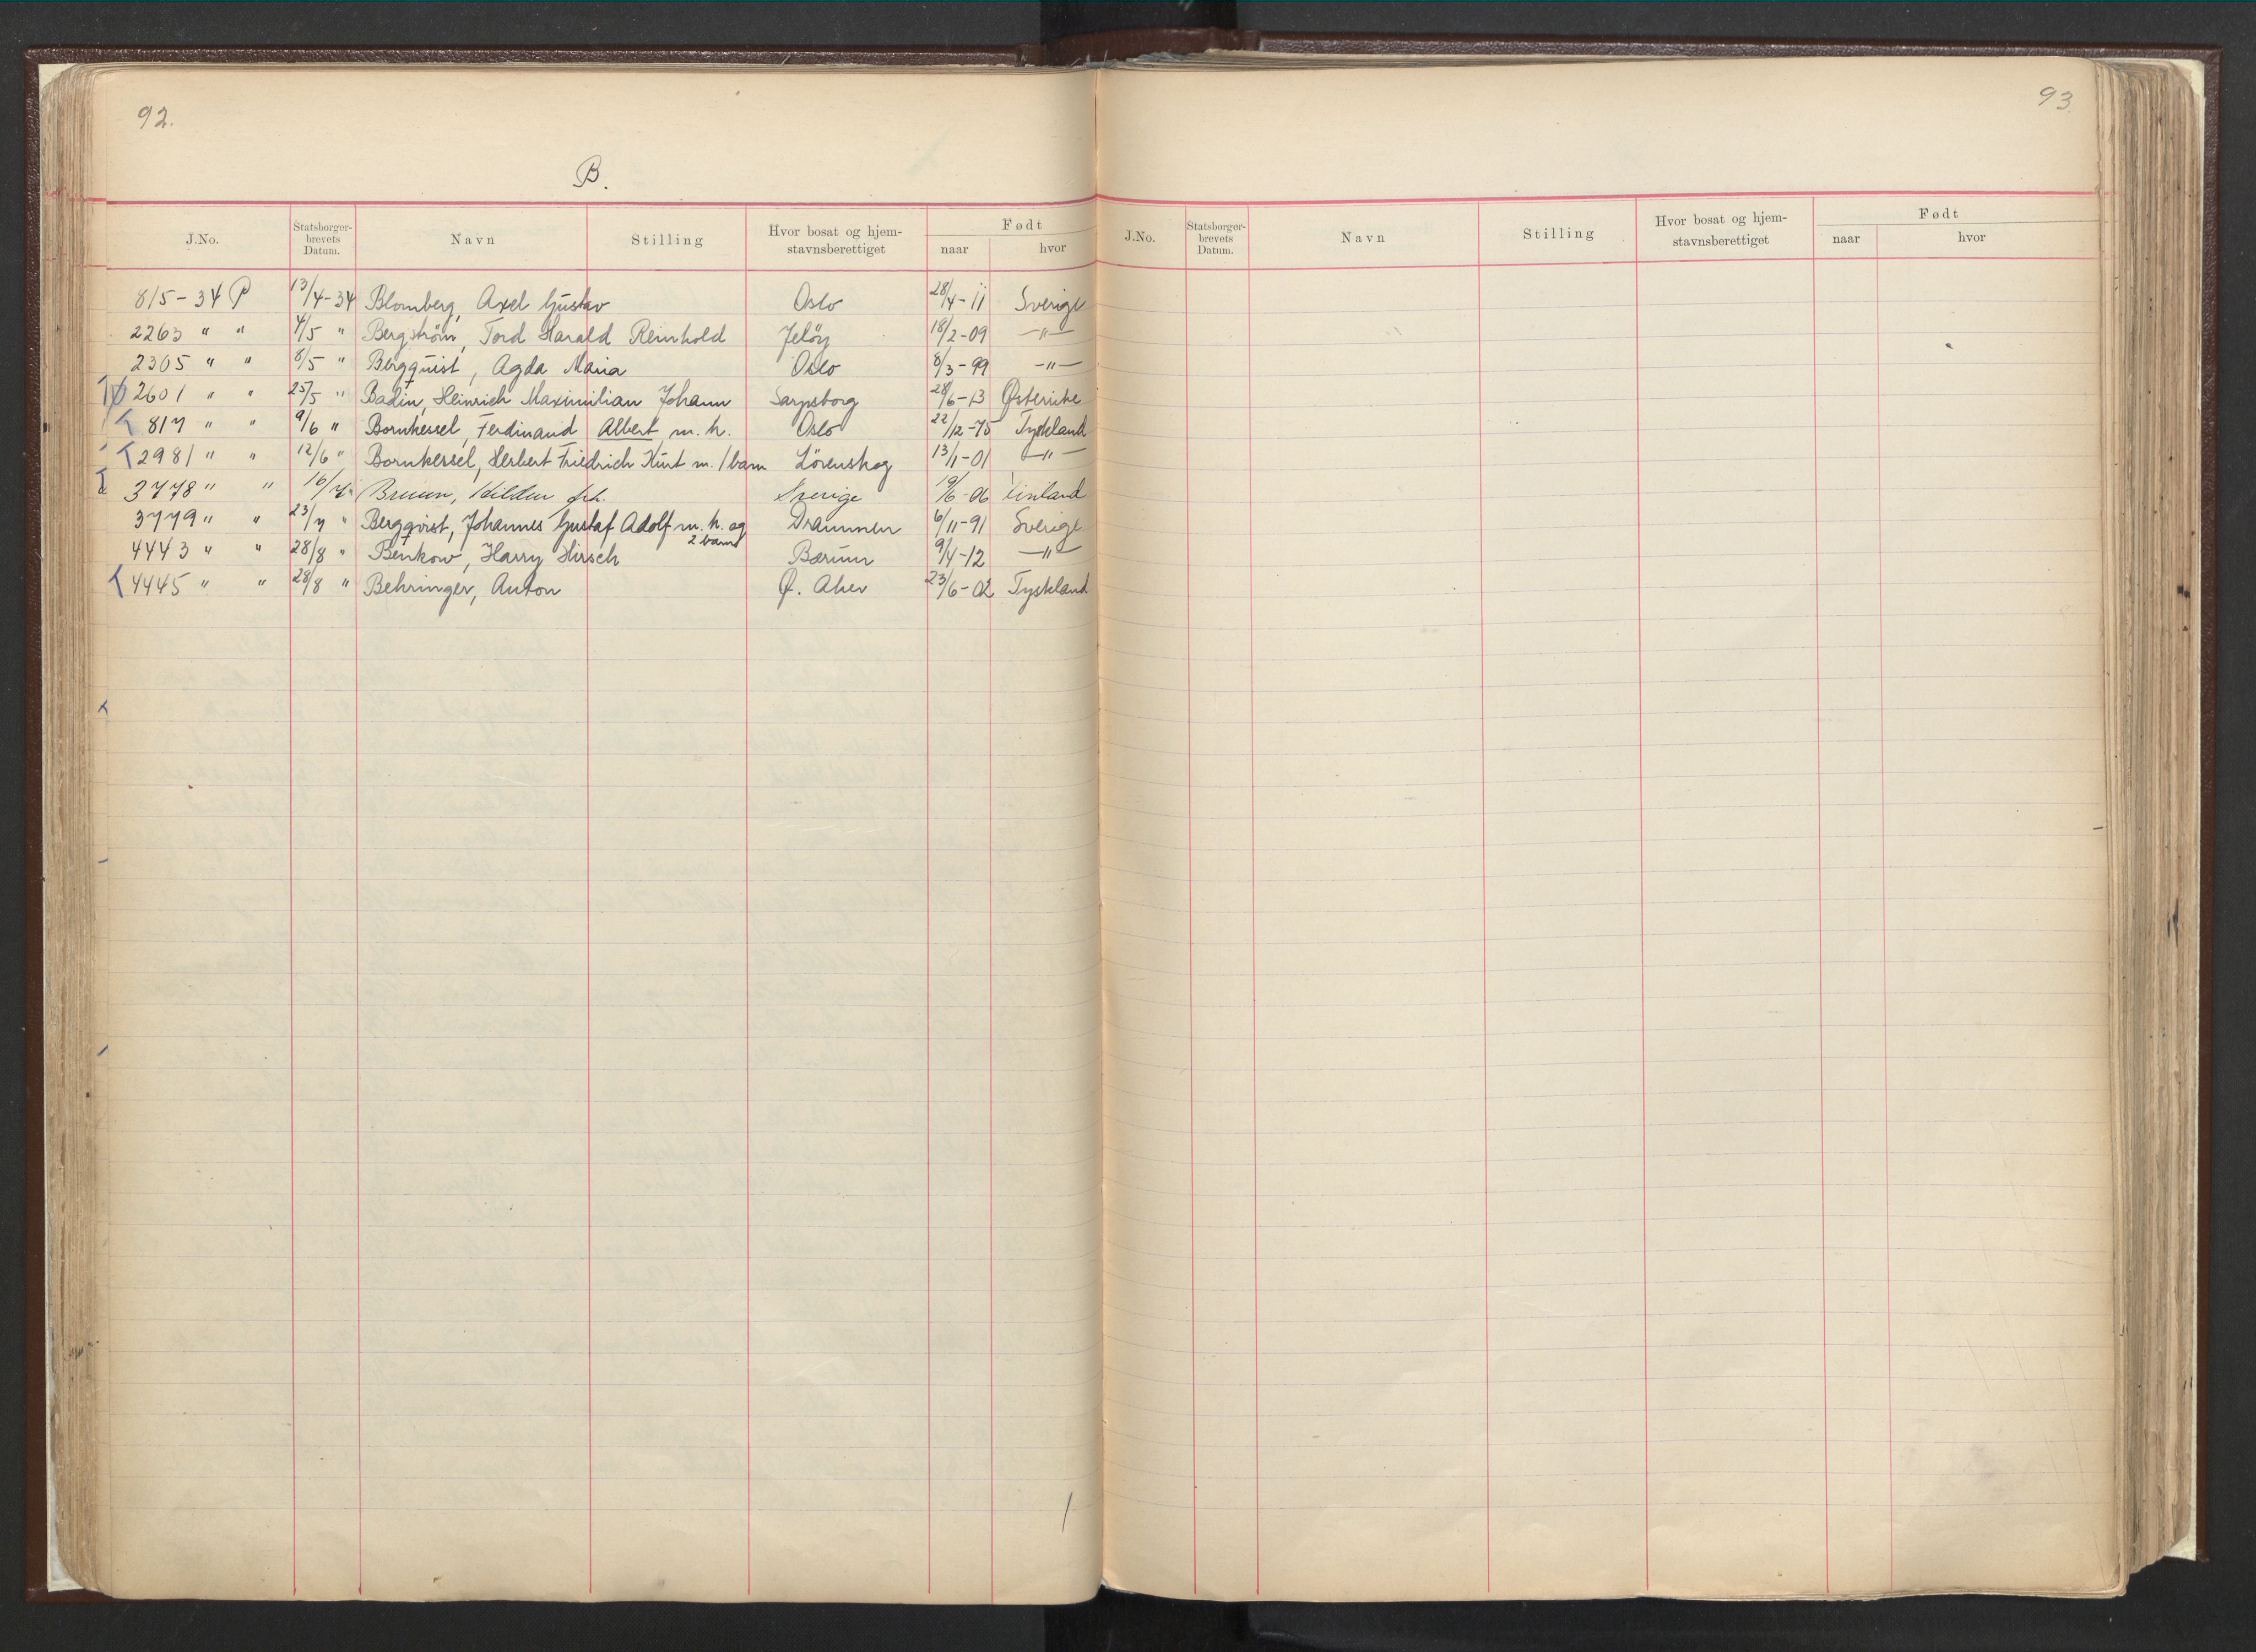 92.
B.
J.No. Statsborger-brevets Datum. Navn Stilling Hvor bosat og hjem-stavnsberettiget Født naar hvor
815-34 P 13/4-34 Blomberg, Axel Gustav Oslo 28/4-11 Sverige
2263 " " 4/5 " Bergström, Tord Harald Reinhold Jelöy 18/2-09 -"-
2365 " " 8/5 " Bergquist, Agda Maria Oslo 8/3-99 -"-
2601 " " 25/5 " Badin, Heinrich Maximilian Johann Sarpsborg 28/6-13 Østerrike
817 " " 9/6 " Bornkessel, Ferdinand Albert m. h. Oslo 22/12-75 Tyskland
T 2981 " " 12/6 " Bornkessel, Herbert Friedrich Kurt m. 1 barn Lörenskog 13/1-01 -"-
3778 " " 16/7 Bruun, frk. Sverige 19/6-06 Finland
3779 " " 23/7 " Bergqvist, Johannes Gustaf Adolf m. h. og 2 barn Drammen 6/11-91 Sverige
4443 " " 28/8 " Benkow, Harry Hirsch Bærum 9/4-12 -"-
T 4445 " " 28/8 " Behringer, Anton Ø. Aker 23/6-02 Tyskland
93
J.No. Statsborger-brevets Datum. Navn Stilling Hvor bosat og hjem-stavnsberettiget Født naar hvor